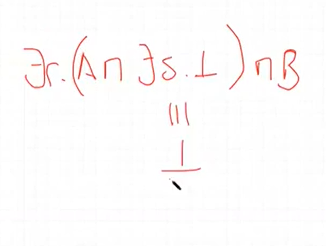 ∃r.(A⊓∃s.⊥)⊓B
≡
⊥